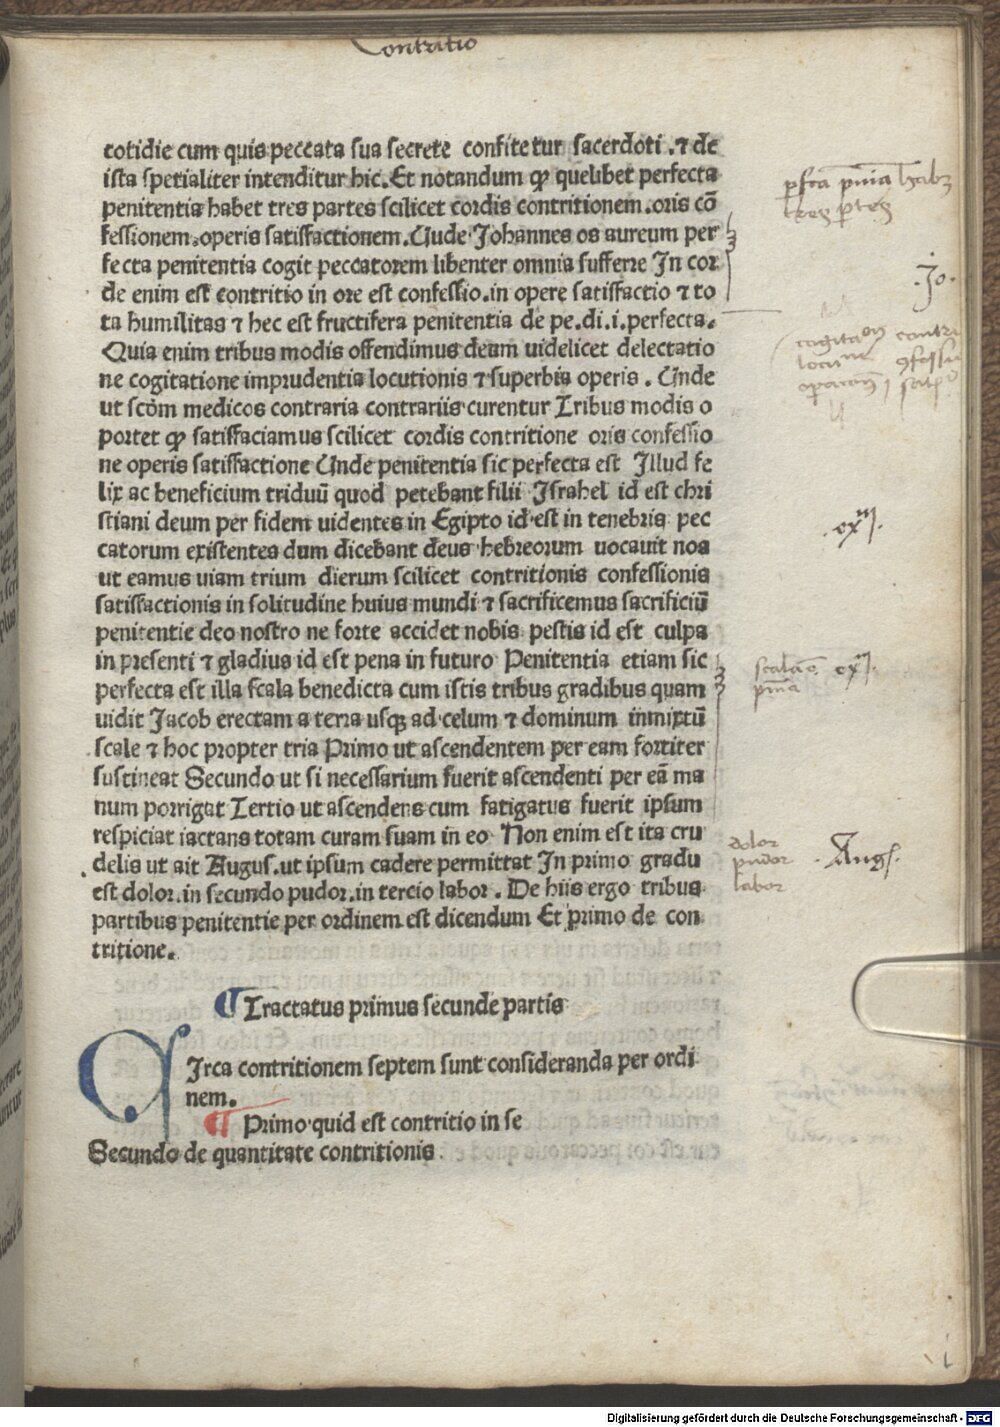 Contritio
cotidie cum quis peccata sua secrete confitetur sacerdoti . ⁊ de
ista spetialiter intenditur hic. Et notandum ꝙ quelibet perfecta
penitentia habet tres partes scilicet cordis contritionem. oris cō
fessionem. operis satisfactionem. Unde Johannes os aureum per
fecta penitentia cogit peccatorem libenter omnia sufferre In cor
de enim est contritio in ore est confessio. in opere satisfactio ⁊ to
ta humilitas ⁊ hec est fructifera penitentia de pe. di. i. perfecta.
Quia enim tribus modis offendimus deum uidelicet delectatio
ne cogitatione imprudentia locutionis ⁊ superbia operis . Unde
ut scōm medicos contraria contrariis curentur Tribus modis o
portet ꝙ satisfaciamus scilicet cordis contritione oris confessio
ne operis satisfactione Unde penitentia sic perfecta est Illud fe
lix ac beneficium triduū quod petebant filii Israhel id est chri
stiani deum per fidem uidentes in Egipto id est in tenebris pec
catorum existentes dum dicebant deus hebreorum uocauit nos
ut eamus uiam trium dierum scilicet contritionis confessionis
satisfactionis in solitudine huius mundi ⁊ sacrificemus sacrificiū
penitentie deo nostro ne forte accidet nobis pestis id est culpa
in presenti ⁊ gladius id est pena in futuro Penitentia etiam sic
perfecta est illa scala benedicta cum istis tribus gradibus quam
uidit Jacob erectam a terra usqꝫ ad celum ⁊ dominum inmixtū
scale ⁊ hoc propter tria Primo ut ascendentem per eam fortiter
sustineat Secundo ut si necessarium fuerit ascendenti per eā ma
num porrigat Tertio ut ascendens cum fatigatus fuerit ipsum
respiciat iactans totam curam suam in eo Non enim est ita cru
delis ut ait Augus. ut ipsum cadere permittat In primo gradu
est dolor. in secundo pudor. in tercio labor . De hiis ergo tribus
partibus penitentie per ordinem est dicendum Et primo de con
tritione.
¶ Tractatus primus secunde partis
CIrca contritionem septem sunt consideranda per ordi
nem.
¶ Primo quid est contritio in se
Secundo de quantitate contritionis .
.Jo.
dolor
pudor
labor
Digitalisierung gefördert durch die Deutsche Forschungsgemeinschaft - DFG